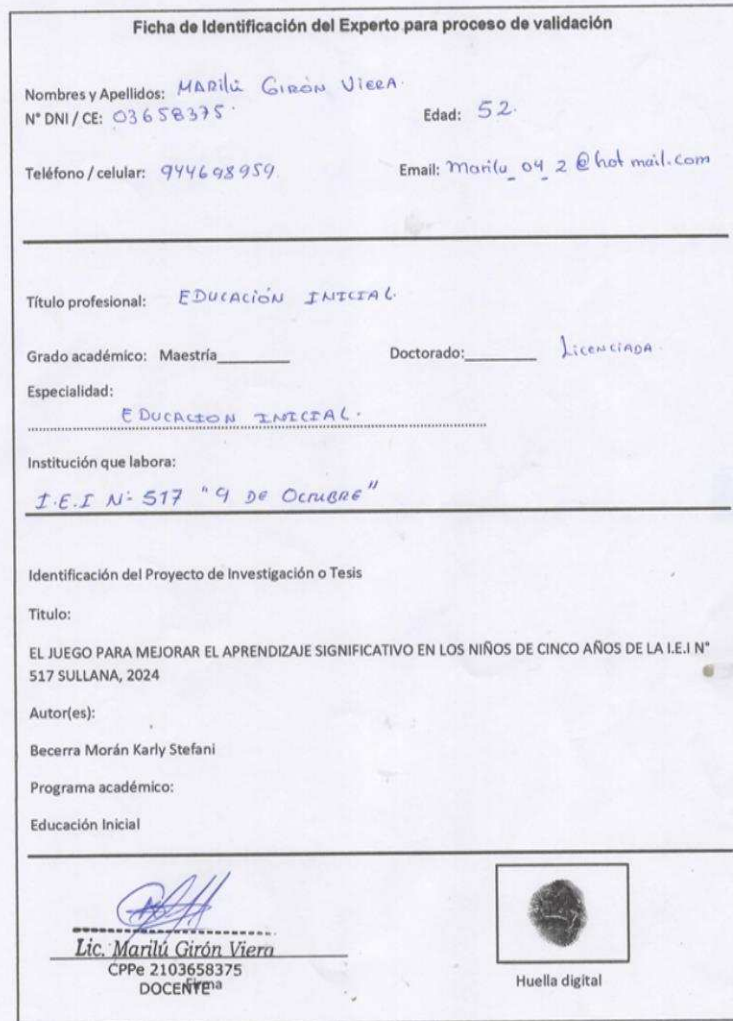 Ficha de Identificación del Experto para proceso de validación
Nombres y Apellidos: MARilú GIRÓN VIERA.
N° DNI / CE: 03658375. Edad: 52.
Teléfono / celular: 944698959. Email: Marilu_04_2@hotmail.com
Título profesional: EDUCACIÓN INICIAL.
Grado académico: Maestría________ Doctorado:________ LICENCIADA.
Especialidad:
EDUCACION INICIAL.
Institución que labora:
I.E.I N: 517 "9 DE OCTUBRE"
Identificación del Proyecto de Investigación o Tesis
Titulo:
EL JUEGO PARA MEJORAR EL APRENDIZAJE SIGNIFICATIVO EN LOS NIÑOS DE CINCO AÑOS DE LA I.E.I N°
517 SULLANA, 2024
Autor(es):
Becerra Morán Karly Stefani
Programa académico:
Educación Inicial
Lic. Marilú Girón Viera
CPPe 2103658375
DOCENTE
Firma
Huella digital